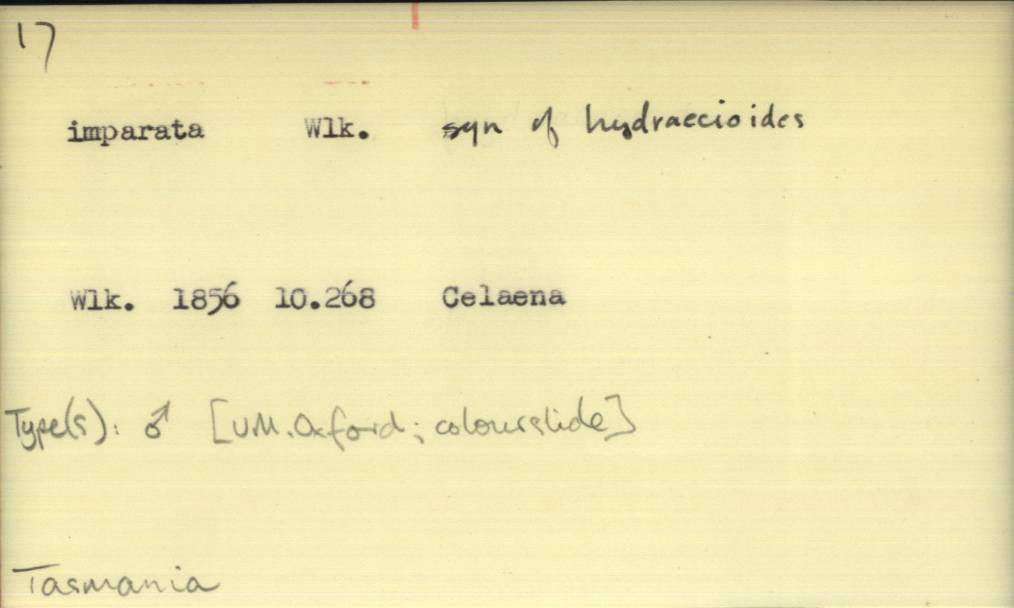 17
imparata Wlk. syn of hydraecioides
Wlk. 1856 10.268 Celaena
Type(s): ♂ [UM. Oxford; colourslide]
Tasmania